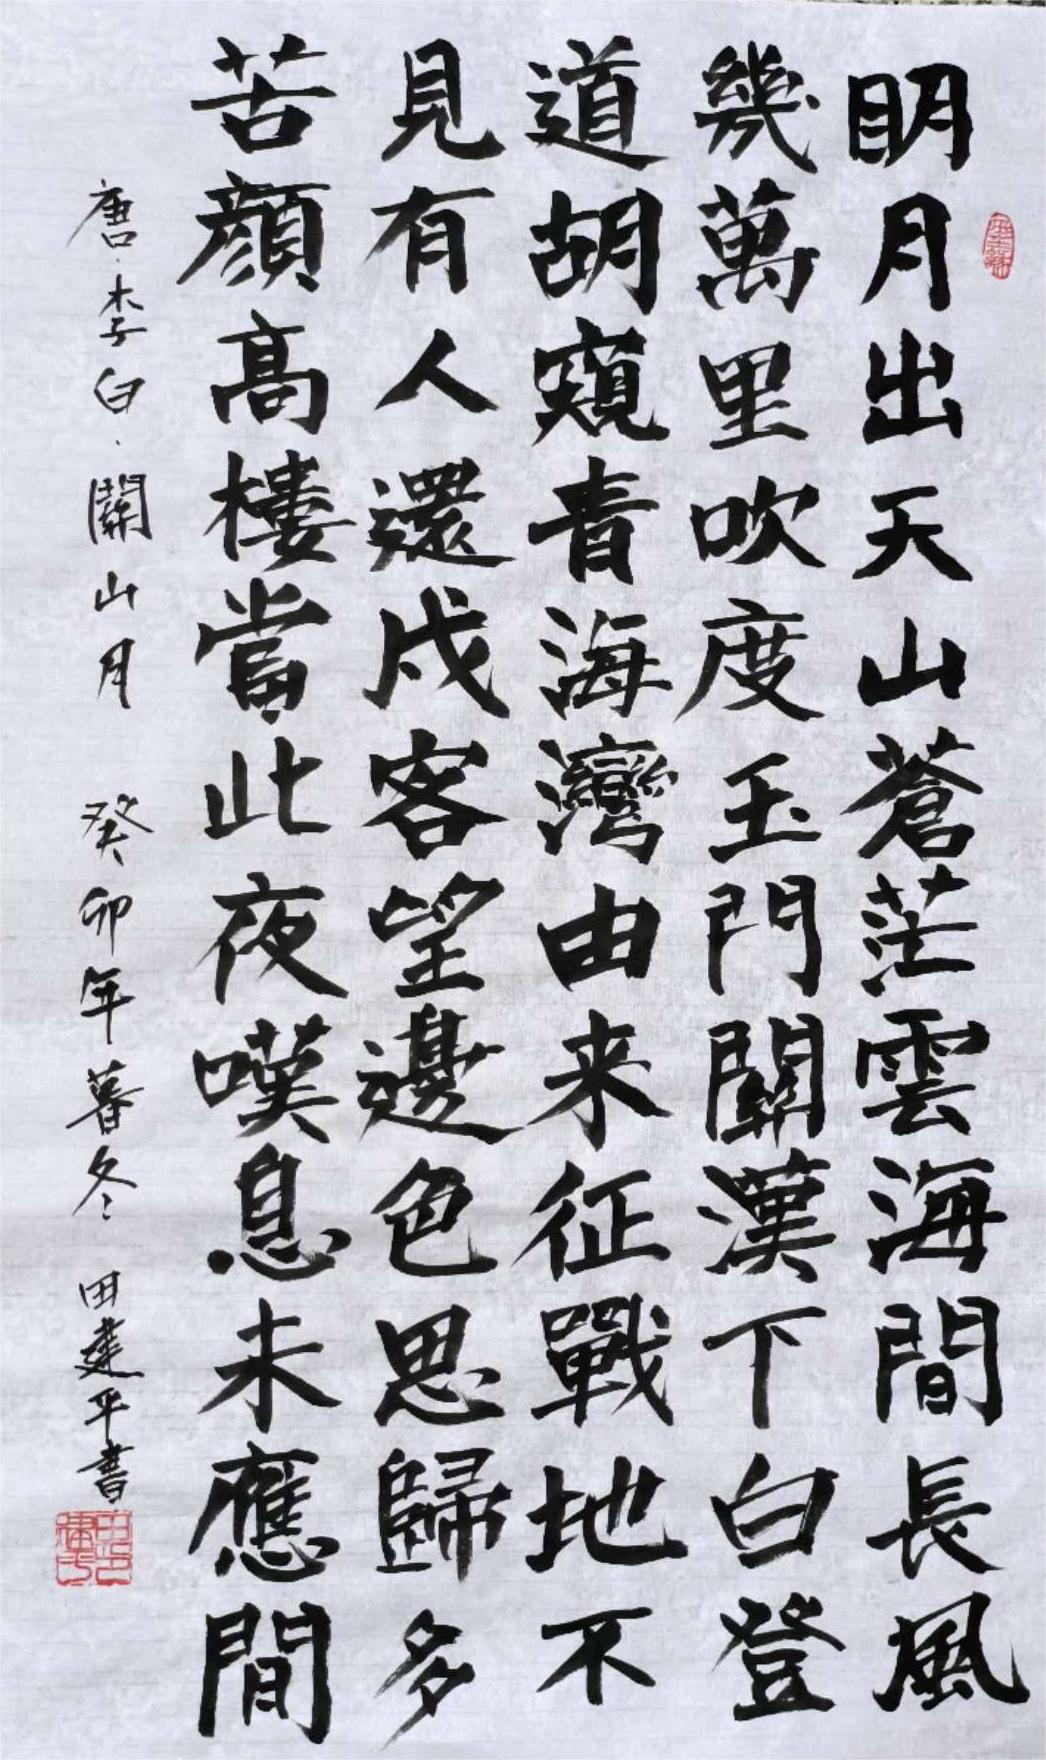 明月出天山蒼茫雲海間長風
幾萬里吹度玉門關漢下白登
道胡窺青海灣由来征戰地不
見有人還戍客望邊色思歸多
苦顏高樓當此夜嘆息未應間
唐·李白·關山月 癸卯年暮冬 田建平書